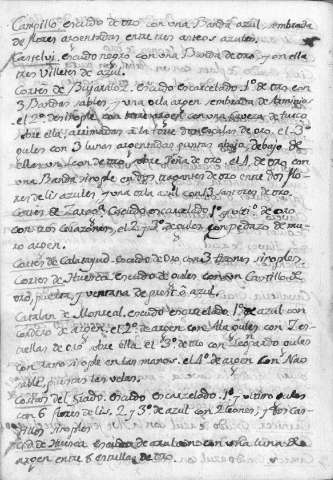 Campillo escudo de oro con una Banda azul sembrada
de flores argentadas entre tres anteos azules.
Castelvi, escudo negro con una Banda de oro, y en ella
tres Villetes de azul.
Cortes de Bujaraloz. Escudo encarcelado. 1º de oro con
3 Bandas sables, y una orla argen sembrada de Arminios
el 2º de sinople con torre argen con una cabeza de turco
sobre ella, arrimadas a la torre dos escalas de oro. el 3º
gules con 3 lunas argentadas puntas abajo, debajo de
ellas un Leon de oro, sobre Peña de oro. el 4º de oro con
una Banda sinople en dos tragantes de oro entre dos flo
res de lis azules, y una orla azul con 13 santores de oro.
Cortes de Zaragª Escudo encarcelado 1º y oltº de oro
con tres corazones, el 2º y 3º de gules con pedazo de mu
ro argen.
Cortes de Calatayud. Escudo de Oro con 3 fajas sinoples.
Cortes de Huesca escudo de gules con un Castillo de
oro, puerta, y ventana de azul.
Catalan de Monreal. escudo encarcelado 1º de azul con
de argen. el 2º de argen con Ala gules con 2 es
trellas de oro sobre ella. el 3º de oro con Leopardo gules
con ramo sinople en las manos. el 4º de argen con Nao
sable, plumas las velas.
Costas del escudo encarcelado. 1º y ultimo gules
con 6 flores de lis. 2 y 3º de azul con 2 Leones, y dos Cas
tillos sinoples.
de Huesca escudo de azul con una luna de
argen entre 6 estrellas de oro.